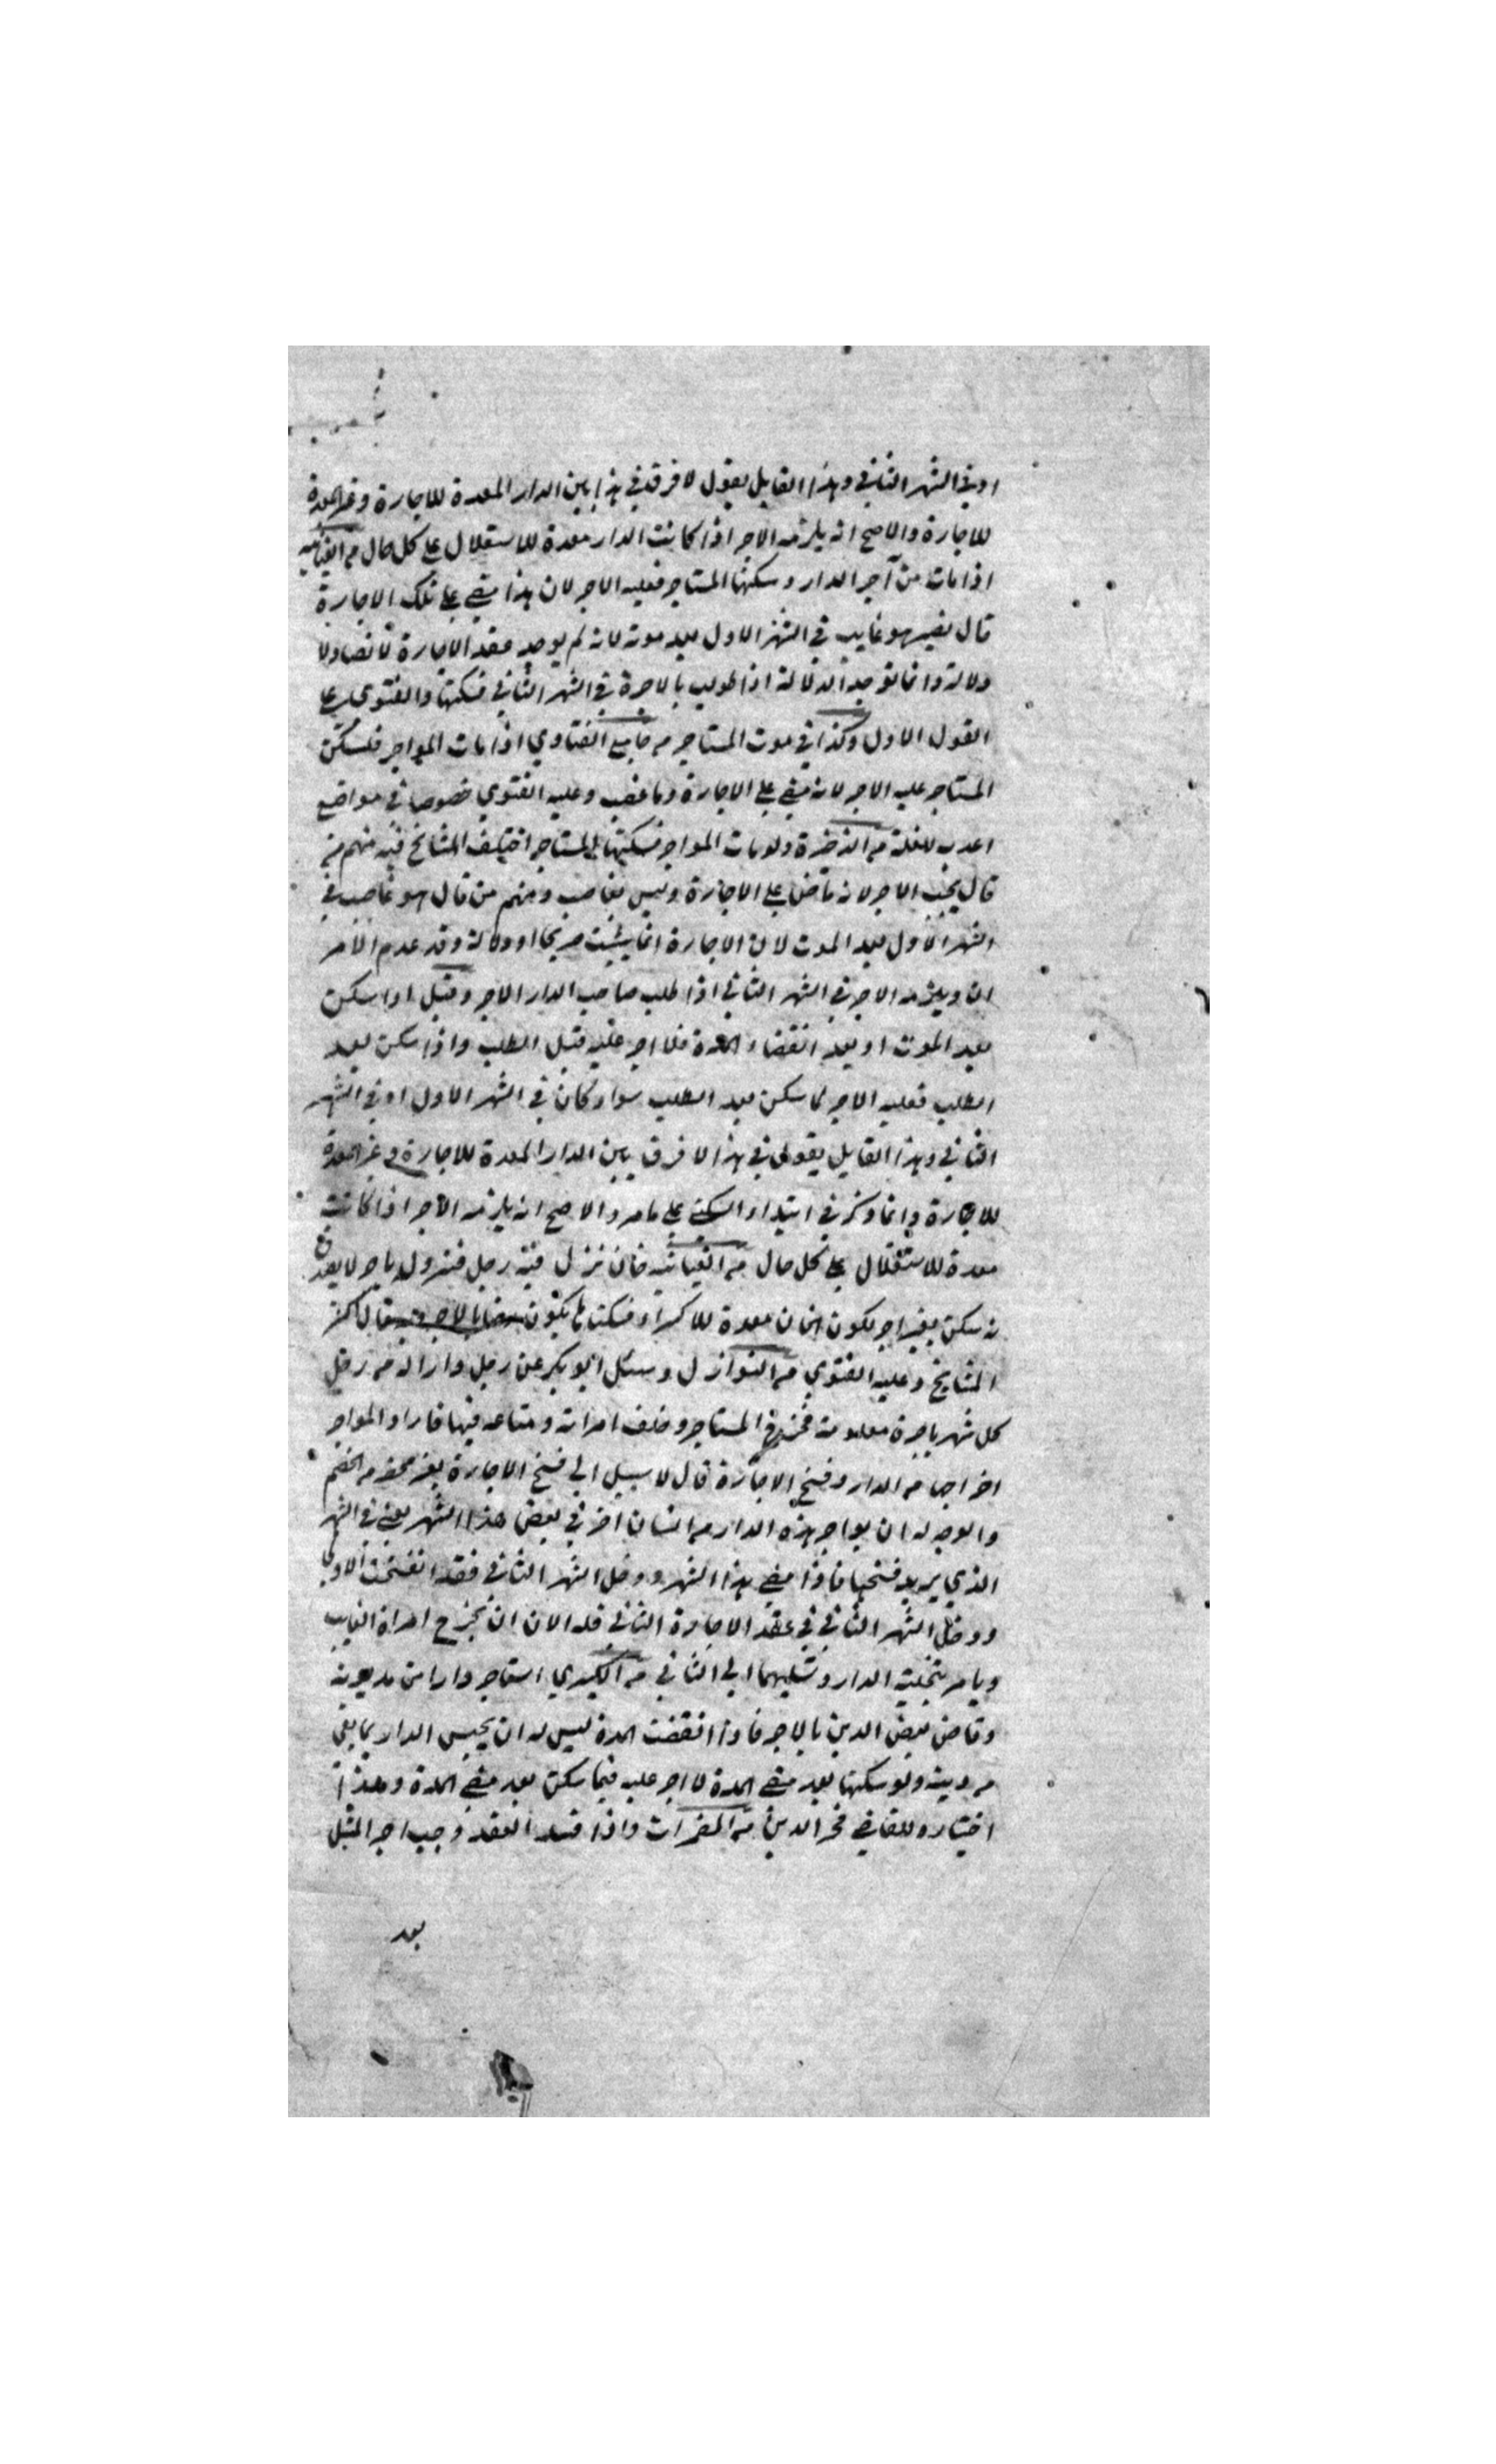 او في الشهر الثاني وهذا القايل يقول لا فرق في هذا بين الدار المعدة للاجارة وغير المعدة
للاجارة والاصح انه يلزمه الاجر اذا كانت الدار معدة للاستغلال على كل حال من الغياثيه
اذا مات من آجر الدار وسكنها المستاجر فعليه الاجر لان هذا مضي على تلك الاجارة
قال نصير هو غايب في الشهر الاول بعد موته لانه لم يوجد عقد الاجارة لا نصا ولا
دلالة وانما توجد الدلالة اذا طولب بالاجرة في الشهر الثاني فسكنها والفتوى على
القول الاول وكذا في موت المستاجر من جامع الفتاوي اذا مات المواجر فسكن
المستاجر عليه الاجر لانه مضي على الاجارة وما غصب وعليه الفتوي خصوصا في مواضع
اعدت للغلة من الذخيرة ولو مات المواجر فسكنها المستاجر اختلف المشايخ فيه منهم من
قال يجب الاجر لانه ماض على الاجارة وليس بغاصب ومنهم من قال هو غاصب في
الشهر الاول بعد الموت لان الاجارة انما يثبت صريحا او دلالة وقد عدم الامر
ان ويلزمه الاجر في الشهر الثاني اذا طلب صاحب الدار الاجر وقيل اذا سكن
بعد الموت او بعد انقضاء المدة فلا اجر عليه قبل الطلب واذا سكن بعد
الطلب فعليه الاجر لما سكن بعد الطلب سواء كان في الشهر الاول او في الشهر
الثاني وهذا القايل يقول في هذا لا فرق بين الدار المعدة للاجارة وغير المعدة
للاجارة وانما ذكر في ابتداء السكنى على ما مر والاصح انه يلزمه الاجر اذا كانت
معدة للاستغلال على كل حال من الغياثيه خان نزل فيه رجل فنزوله باجر لا يصدق
نه سكن بغير اجر لكون الخان معدة للاكراء فسكناها يكون رضا بالاجر وبه قال اكثر
المشايخ وعليه الفتوي من النوازل وسئل ابو بكر عن رجل دارا له من رجل
كل شهر باجرة معلومة فخرج المستاجر وخلف امراته ومتاعه فيها فاراد المواجر
اخراجها من الدار وفسخ الاجارة قال لا سبيل الي فسخ الاجارة بغير محضر من الخصم
والوجه له ان يواجر هذه الدار من انسان اخر في بعض هذا الشهر يعني في الشهر
الذي يريد فسخها فاذا مضي هذا الشهر ودخل الشهر الثاني فقد انفسخت الاولي
ودخل الشهر الثاني في عقد الاجارة الثاني فله الان ان يخرج امراة الغايب
ويامر بتخلية الدار وتسليمها الي الثاني من الكبري استاجر دارا من مديونه
وقاص بعض الدين بالاجر فاذا انقضت المدة ليس له ان يحبس الدار بما بقي
من دينه ولو سكنها بعد مضي المدة لا اجر عليه فيما سكن بعد مضي المدة وهذا
اختيار القاضي فخر الدين من المضمرات واذا فسد العقد وجب اجر المثل
بعد